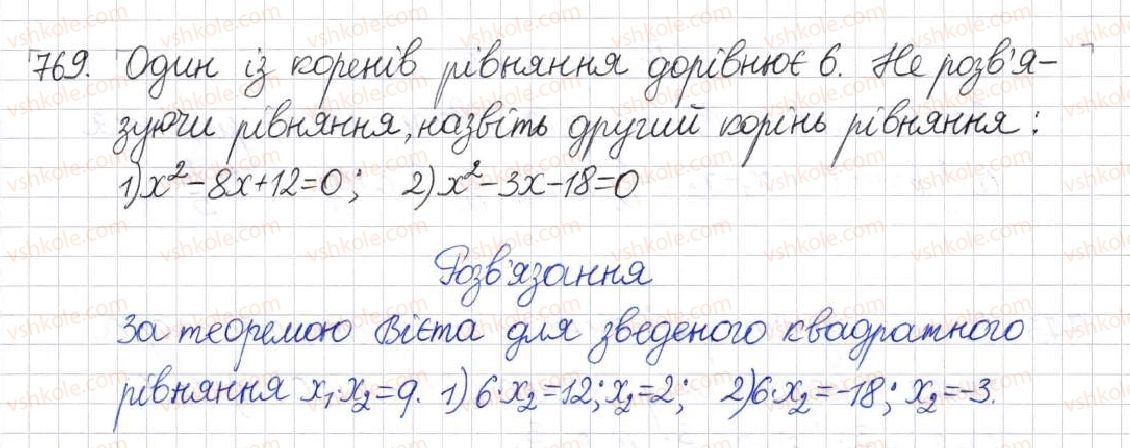 769. Один із коренів рівняння дорівнює 6. Не розв'я-
зуючи рівняння, назвіть другий корінь рівняння:
1) x²-8x+12=0; 2) x²-3x-18=0
Розв'язання
За теоремою Вієта для зведеного квадратного
рівняння x₁·x₂=q. 1) 6·x₂=12; x₂=2; 2) 6·x₂=-18; x₂=-3.